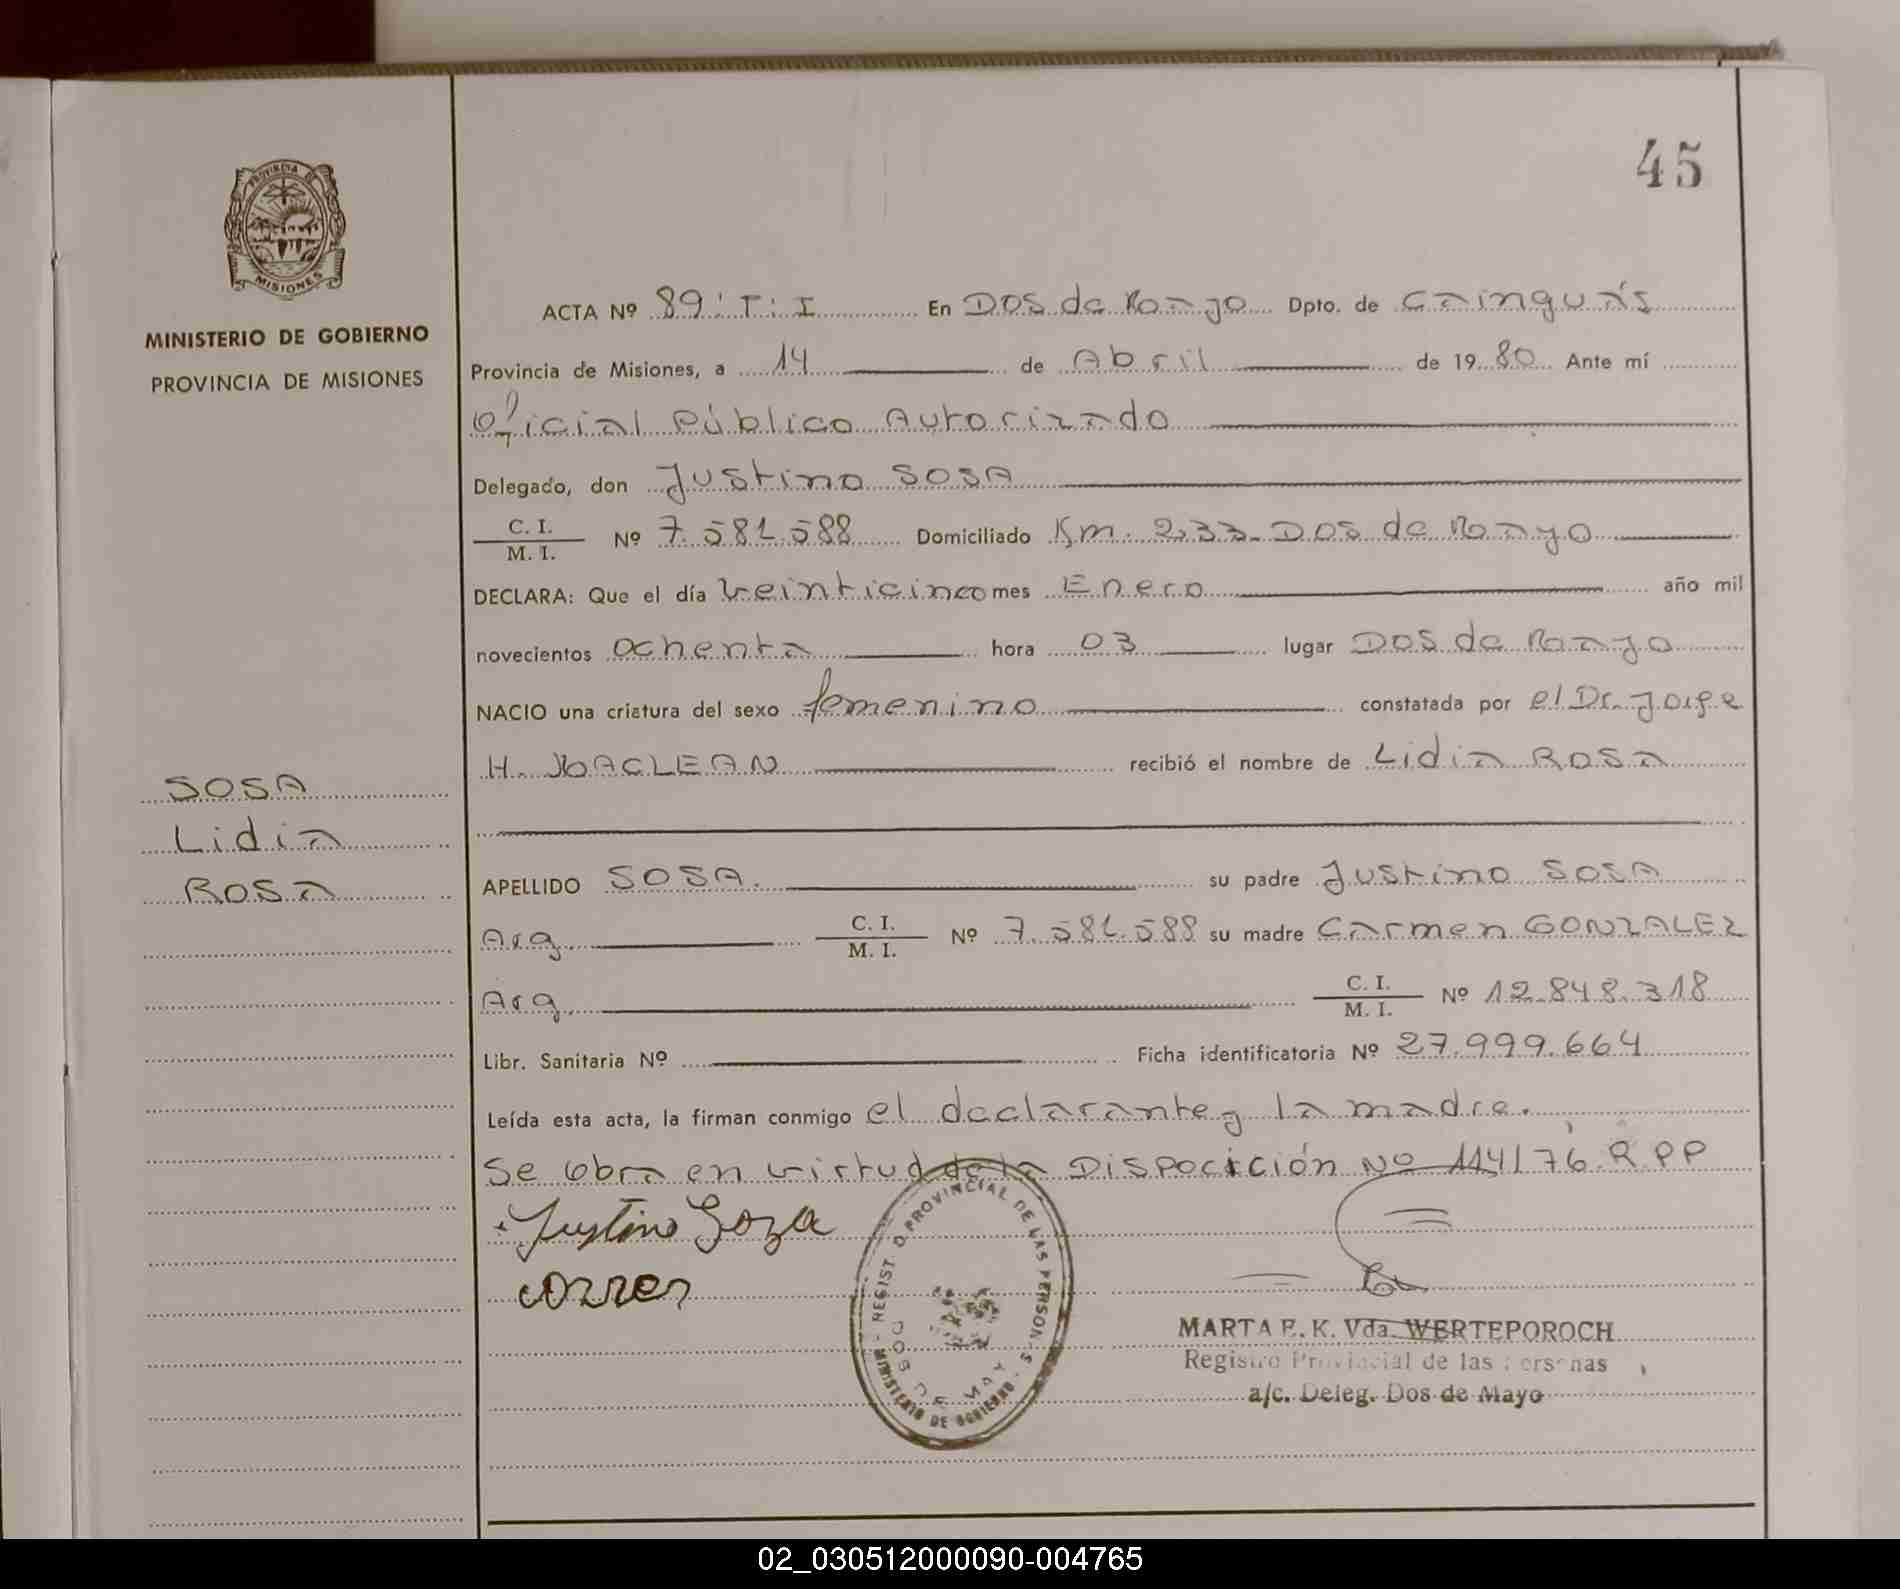 45
PROVINCIA DE
MISIONES
MINISTERIO DE GOBIERNO
PROVINCIA DE MISIONES
ACTA Nº 89 : T : I En Dos de Mayo Dpto. de Cainguás
Provincia de Misiones, a 14 de Abril de 1980 Ante mí
Oficial Público Autorizado
Delegado, don Justino SOSA
C. I.
M. I. Nº 7.581.588 Domiciliado Km. 233 Dos de Mayo
DECLARA: Que el día veinticinco mes Enero año mil
novecientos ochenta hora 03 lugar Dos de Mayo
NACIO una criatura del sexo femenino constatada por el Dr. Jorge
H. MACLEAN recibió el nombre de Lidia Rosa
SOSA
Lidia
Rosa
APELLIDO SOSA. su padre Justino SOSA
Arg. C. I.
M. I. Nº 7.581.588 su madre Carmen GONZALEZ
Arg. C. I.
M. I. Nº 12.848.318
Libr. Sanitaria Nº Ficha identificatoria Nº 27.999.664
Leída esta acta, la firman conmigo el declarante y la madre.
Se obra en virtud de la Disposición Nº 114/76 R P P
Justino Soza
REGISTRO PROVINCIAL DE LAS PERSONAS
DOS DE MAYO
MINISTERIO DE GOBIERNO
MARTA E. K. Vda. WERTEPOROCH
Registro Provincial de las Personas
a/c. Deleg. Dos de Mayo
02_030512000090-004765